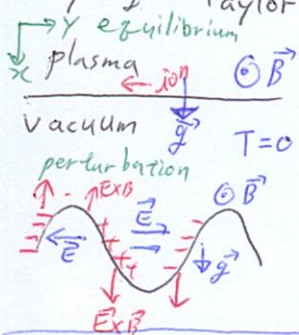 Taylor
Y equilibrium
x
plasma
ion
B
g
vacuum
T=0
perturbation
ExB
E
B
E
g
ExB